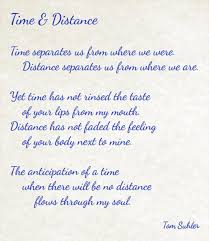 Time & Distance
Time separates us from where we were.
Distance separates us from where we are.
Yet time has not rinsed the taste
of your lips from my mouth.
Distance has not faded the feeling
of your body next to mine.
The anticipation of a time
when there will be no distance
flows through my soul.
Tom Suhler